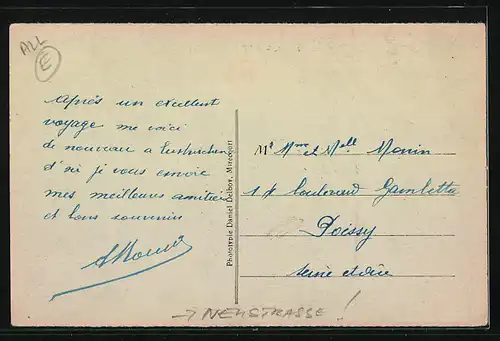 ALL
E
Après un excellent
voyage me voici
de nouveau a
d'où je vous envoie
mes meilleurs amitiés
et bons souvenirs
Phototypie Daniel Delboy, Mirecourt
Mr Mme et Mell
boulevard Gambetta
Poissy
Seine et Oise
→ NEUSTRASSE !